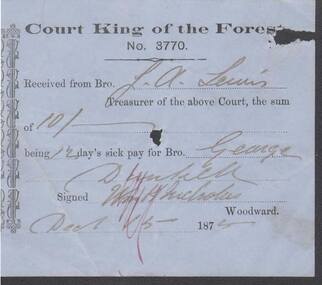 Court King of the Fores
No. 3770.
Received from Bro. J. A. Lewis
Treasurer of the above Court, the sum
of 10/-
being 12 day's sick pay for Bro. George
Signed Wm H Nicholas
Woodward.
15 187